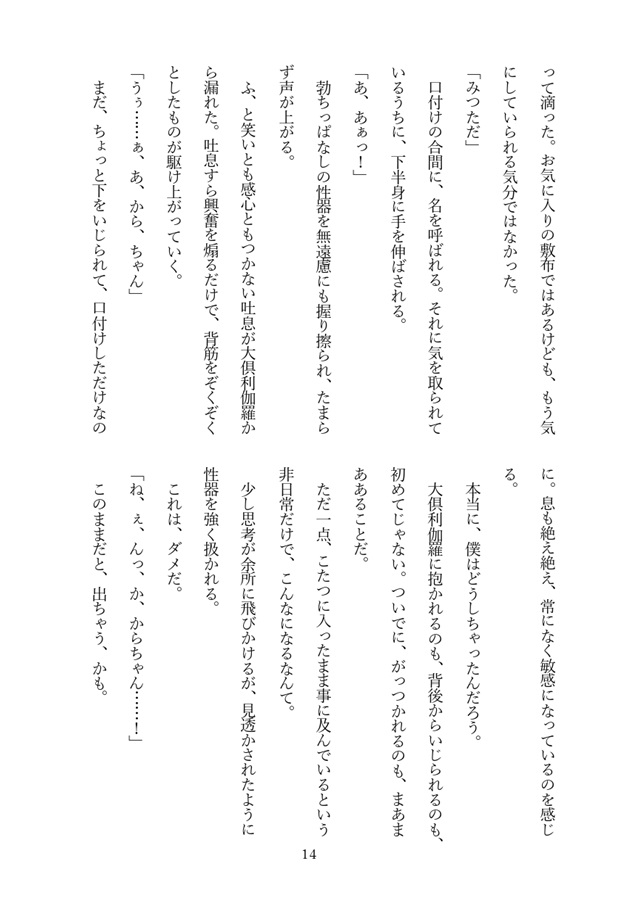 って滴った。お気に入りの敷布ではあるけども、もう気
にしていられる気分ではなかった。
「みつただ」
口付けの合間に、名を呼ばれる。それに気を取られて
いるうちに、下半身に手を伸ばされる。
「あ、あぁっ！」
勃ちっぱなしの性器を無遠慮にも握り擦られ、たまら
ず声が上がる。
ふ、と笑いとも感心ともつかない吐息が大倶利伽羅か
ら漏れた。吐息すら興奮を煽るだけで、背筋をぞくぞく
としたものが駆け上がっていく。
「うぅ……ぁ、あ、から、ちゃん」
まだ、ちょっと下をいじられて、口付けしただけなの
に。息も絶え絶え、常になく敏感になっているのを感じ
る。
本当に、僕はどうしちゃったんだろう。
大倶利伽羅に抱かれるのも、背後からいじられるのも、
初めてじゃない。ついでに、がっつかれるのも、まあま
ああることだ。
ただ一点、こたつに入ったまま事に及んでいるという
非日常だけで、こんなになるなんて。
少し思考が余所に飛びかけるが、見透かされたように
性器を強く扱かれる。
これは、ダメだ。
「ね、ぇ、んっ、か、からちゃん……！」
このままだと、出ちゃう、かも。
14